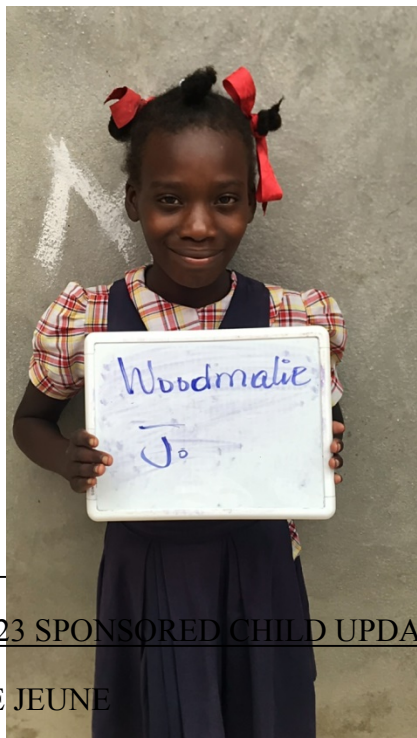 N
Woodmalie
J.
23 SPONSORED CHILD UPDA
E JEUNE